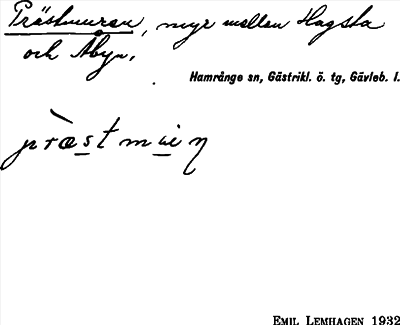 Prästmuren, myr mellan Hagsta
och Åbyn.
Hamrånge sn, Gästrikl. ö. tg, Gävleb. l.
EMIL LEMHAGEN 1932